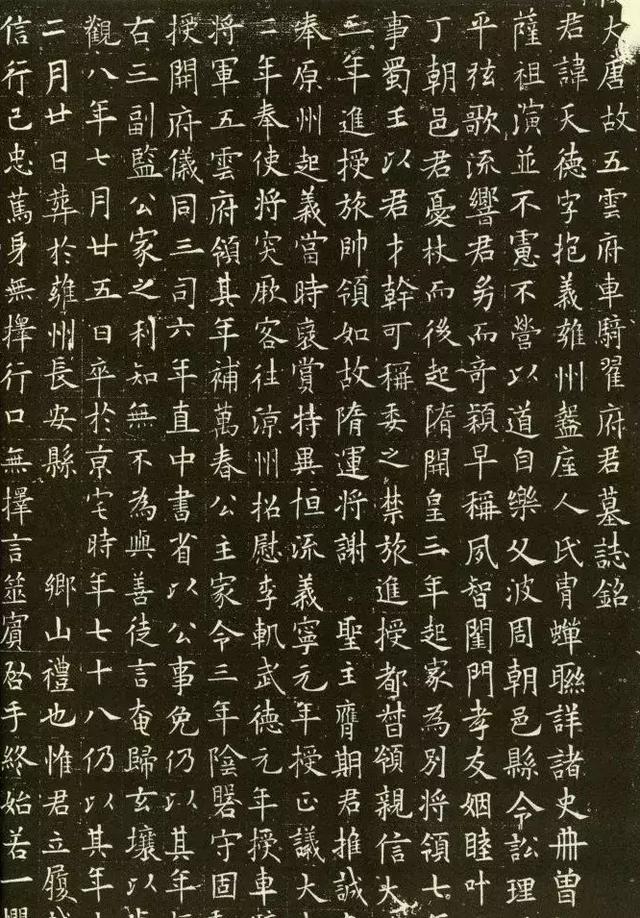 大唐故五雲府車騎翟府君墓誌銘
君諱天德字抱義雄州盩厔人氏胄蟬聯詳諸史冊曾
薩祖演並不𢝊不營以道自樂父波周朝邑縣令訟理
平弦歌流響君㓜而奇穎早稱夙智閨門孝友姻睦叶
丁朝邑君憂杖而後起隋開皇三年起家為別將領七
事蜀王以君才幹可稱委之禁旅進授都督領親信大
三年進授旅帥領如故隋運將謝 聖主膺期君推誠
奉原州起義當時褒賞特異恒流義寧元年授正議大
二年奉使將突厥客往涼州招慰李軌武德元年授車騎
將軍五雲府領其年補萬春公主家令三年陰磐守固
授開府儀同三司六年直中書省以公事免仍以其年
右三副監公家之利知無不為與善徒言奄歸玄壤以
觀八年七月廿五日卒於京宅時年七十八仍以其年
二月廿日葬於雍州長安縣 鄉山禮也惟君立履
信行己忠篤身無擇行口無擇言筮賓啓手終始若一